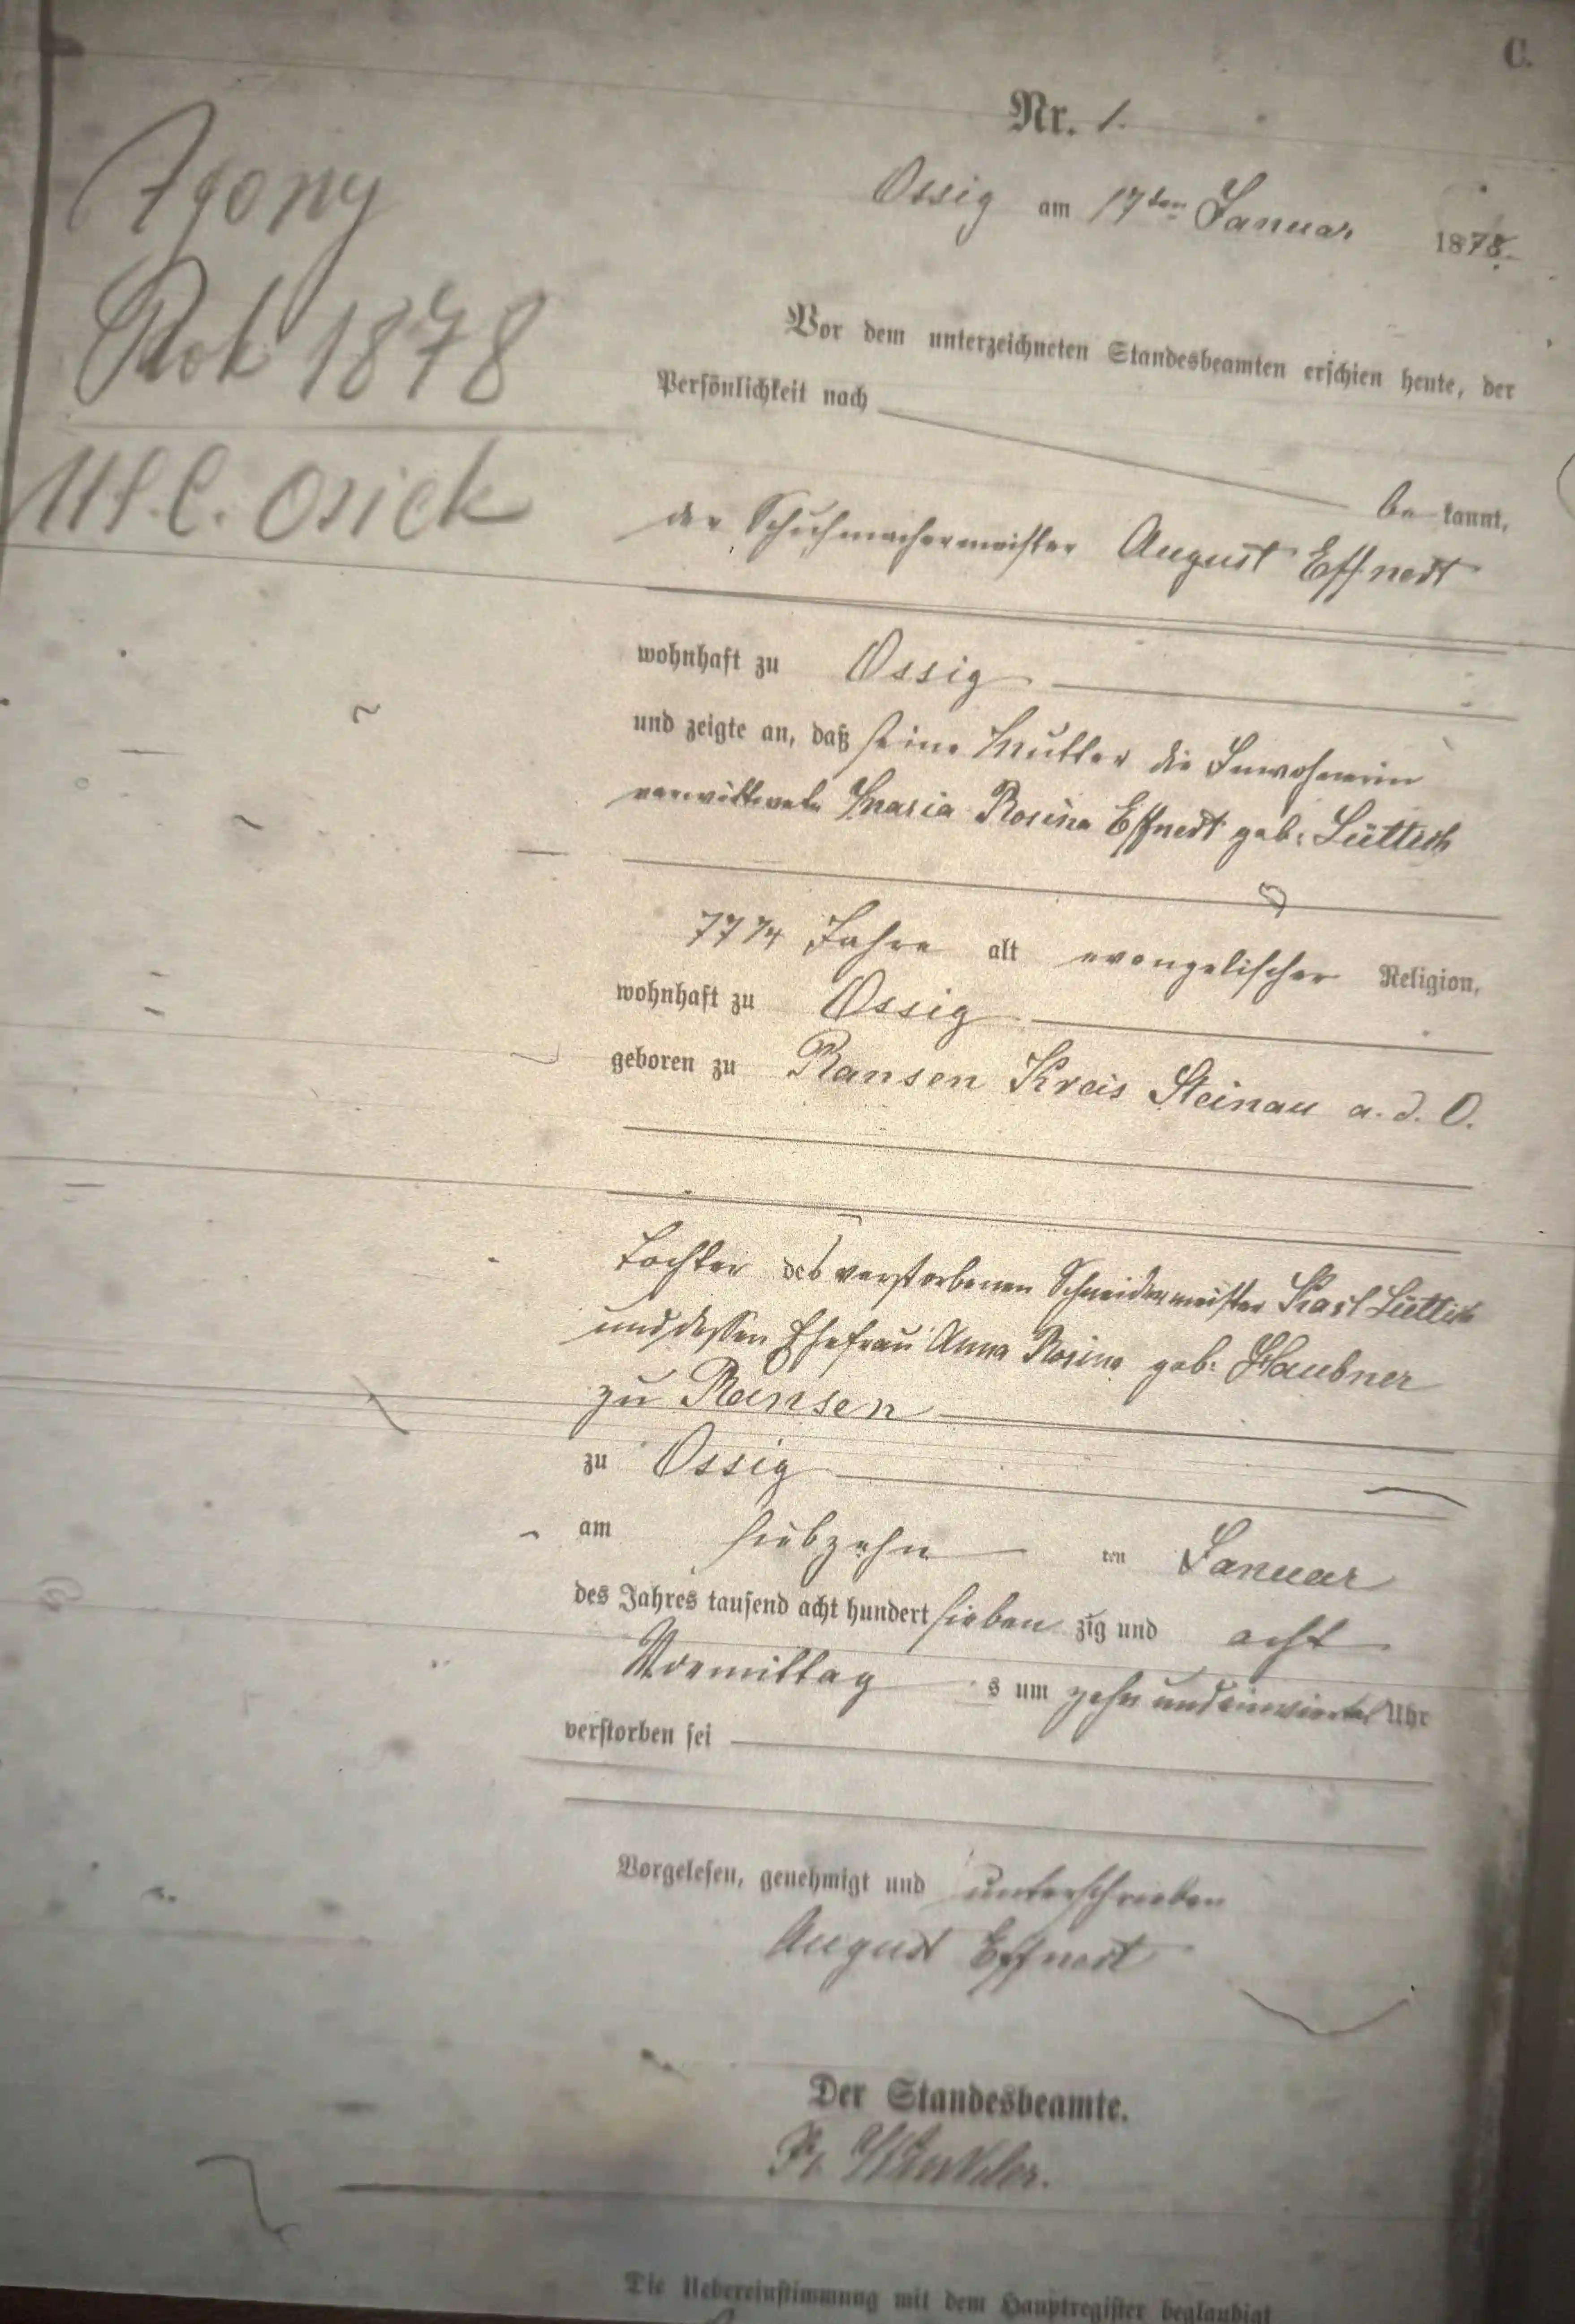 C.
Nr. 1.
Zgony
Rok 1878
U.S.C. Osiek
Ossig am 17ten Januar 1878.
Vor dem unterzeichneten Standesbeamten erschien heute, der
Persönlichkeit nach
be kannt,
der Schuhmachermeister August Effnert
wohnhaft zu Ossig
und zeigte an, daß seine Mutter die Inwohnerin
verwittwete Maria Rosina Effnert geb. Lüttich
77 Jahre alt evangelischer Religion,
wohnhaft zu Ossig
geboren zu Ransen Kreis Steinau a. d. O.
Tochter des verstorbenen Schneidermeister Karl Lüttich
und dessen Ehefrau Anna Rosina geb. Haubner
zu Ransen
zu Ossig
am siebzehn ten Januar
des Jahres tausend acht hundert sieben zig und acht
Vormittag s um zehn und einviertel Uhr
verstorben sei
Vorgelesen, genehmigt und unterschrieben
August Effnert
Der Standesbeamte.
Die Uebereinstimmung mit dem Hauptregister beglaubigt